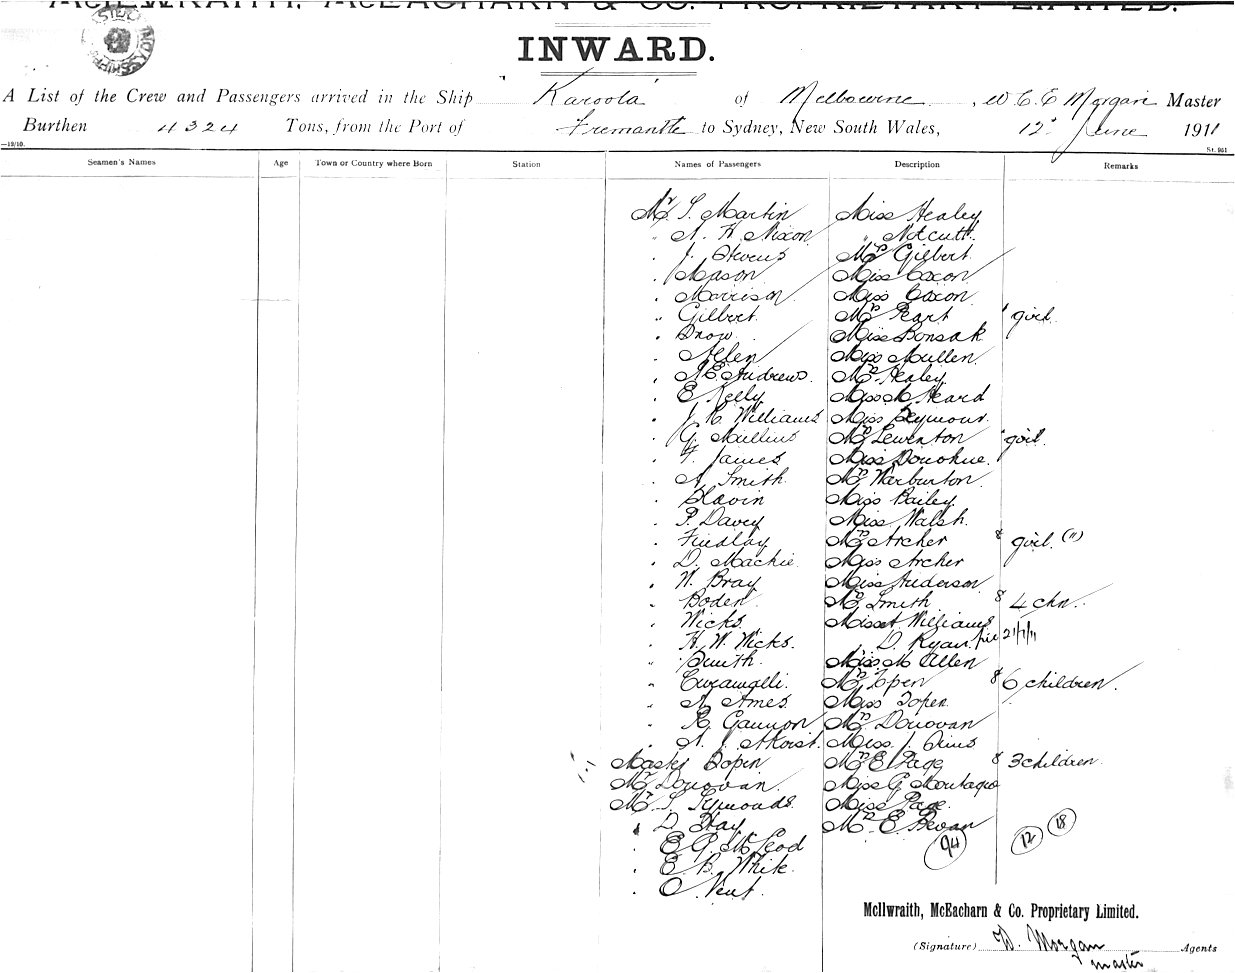 McILWRAITH, McEACHARN & CO. PROPRIETARY LIMITED.
INWARD.
A List of the Crew and Passengers arrived in the Ship Karoola of Melbourne, W C E Morgan Master
Burthen 4324 Tons, from the Port of Fremantle to Sydney, New South Wales, 12th June 1911
—12/10. St. 961
Seamen's Names Age Town or Country where Born Station Names of Passengers Description Remarks
Mr S. Martin Miss Healey
" A. H. Nixon " Notcutt
" J. Stevens Mrs Gilbert
" Mason Miss Caxon
" Morrison Miss Caxon
" Gilbert Mrs Peart girl
" Drow Miss Bonsak
" Allen Miss Mullen
" A E Andrews Mrs Healey
" E Kelly Miss M Heard
" J. R. Williams Miss Seymour
" G. Mullins Mrs Lewenton girl
" F. James Miss Donohue
" A Smith Mrs Warburton
" Slavin Miss Bailey
" P. Davey Miss Walsh
" Findlay Mrs Archer & girl (11)
" D. Mackie Miss Archer
" W. Bray Miss Anderson
" Boden Mrs Smith & 4 chn.
" Wicks Miss A Williams
" H. W. Wicks. D. Ryan 21/7/11
" Smith Miss M Allen
" Mrs Topen & 6 children.
" A Ames Miss Topen
" R Gannon Mrs Donovan
" A. J. Miss J.
Master Topin Mrs E Page & 3 children
Mr Donovan Miss G Montague
Mr S. Symonds Miss Page
" D Hay Mrs E. Bevan
" E G McLeod 94 12 18
" E B. White
" C Vent
McIlwraith, McEacharn & Co. Proprietary Limited.
(Signature) W. Morgan Agents
master